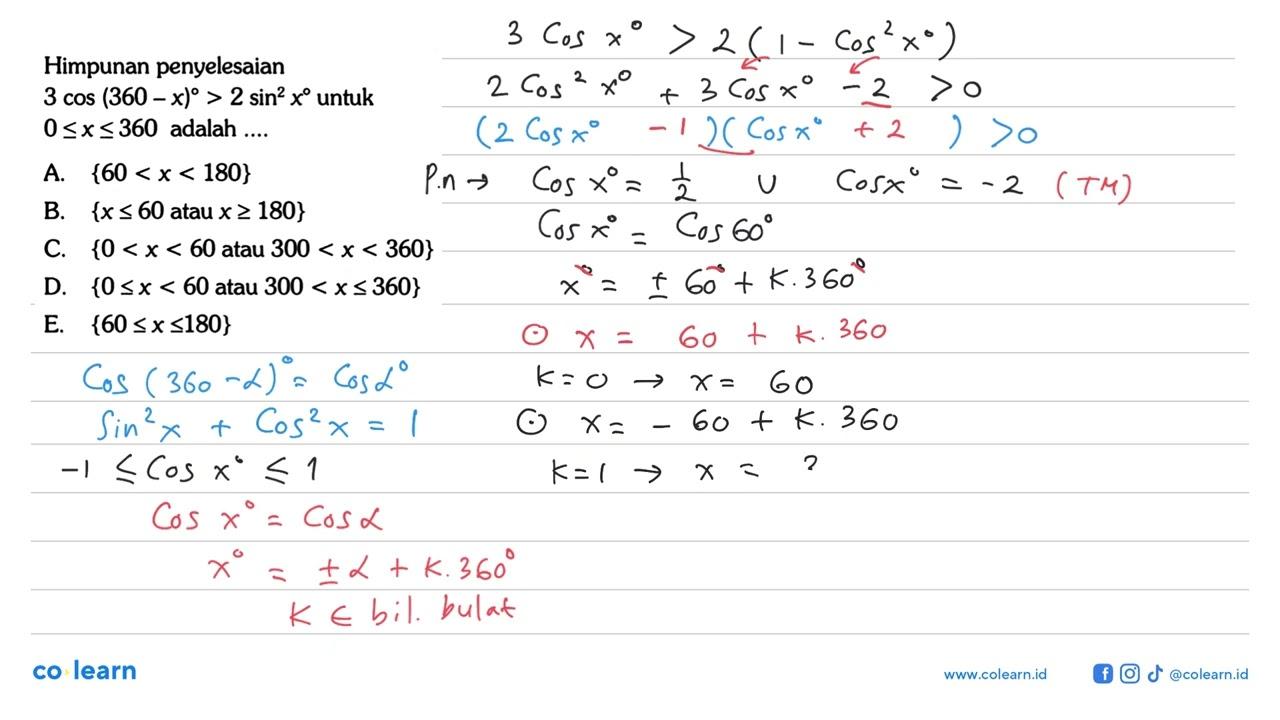 Himpunan penyelesaian
3 cos (360 – x)° > 2 sin² x° untuk
0 ≤ x ≤ 360 adalah ....
A. {60 < x < 180}
B. {x ≤ 60 atau x ≥ 180}
C. {0 < x < 60 atau 300 < x < 360}
D. {0 ≤ x < 60 atau 300 < x ≤ 360}
E. {60 ≤ x ≤180}
Cos (360 - α)° = Cos α°
Sin² x + Cos² x = 1
-1 ≤ Cos x° ≤ 1
Cos x° = Cos α
x° = ± α + K. 360°
K ∈ bil. bulat
3 Cos x° > 2 (1 - Cos² x°)
2 Cos² x° + 3 Cos x° - 2 > 0
(2 Cos x° - 1)(Cos x° + 2) > 0
P.n → Cos x° = 1/2 ∪ Cos x° = -2 (TM)
Cos x° = Cos 60°
x° = ± 60° + K. 360°
⊙ x = 60 + K. 360
K = 0 → x = 60
⊙ x = - 60 + K. 360
K = 1 → x = ?
co learn
www.colearn.id
@colearn.id